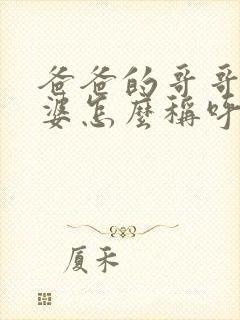 爸爸的哥哥
婆怎麼稱呼
厦禾